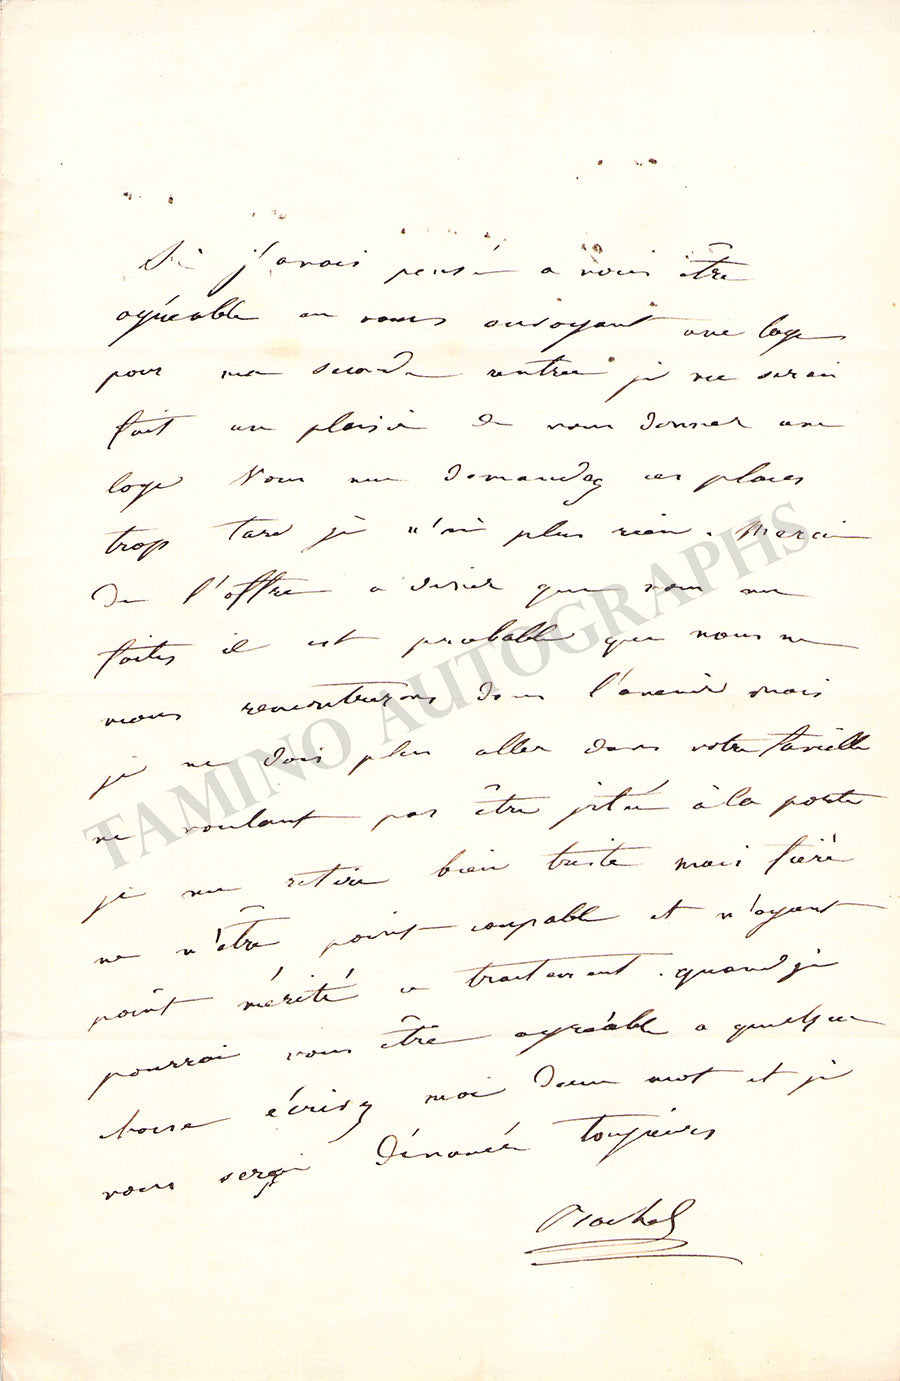 Si j'avais pensé a vous être
agréable en vous envoyant une loge
pour ma seconde rentrée je me serai
fait un plaisir de vous donner une
loge Vous me demandez ces places
trop tard je n'ai plus rien. Merci
de l'offre a diner que vous me
faites il est probable que nous ne
nous rencontrerons dans l'avenir mais
je ne dois plus aller dans votre famille
ne voulant pas être jetée à la porte
je me retire bien triste mais fière
ne n'être point coupable et n'ayant
point mérité ce traitement. quand je
pourrai vous être agréable a quelque
chose écrivez moi deux mot et je
vous serai dévouée toujours
Rachel
TAMINO AUTOGRAPHS